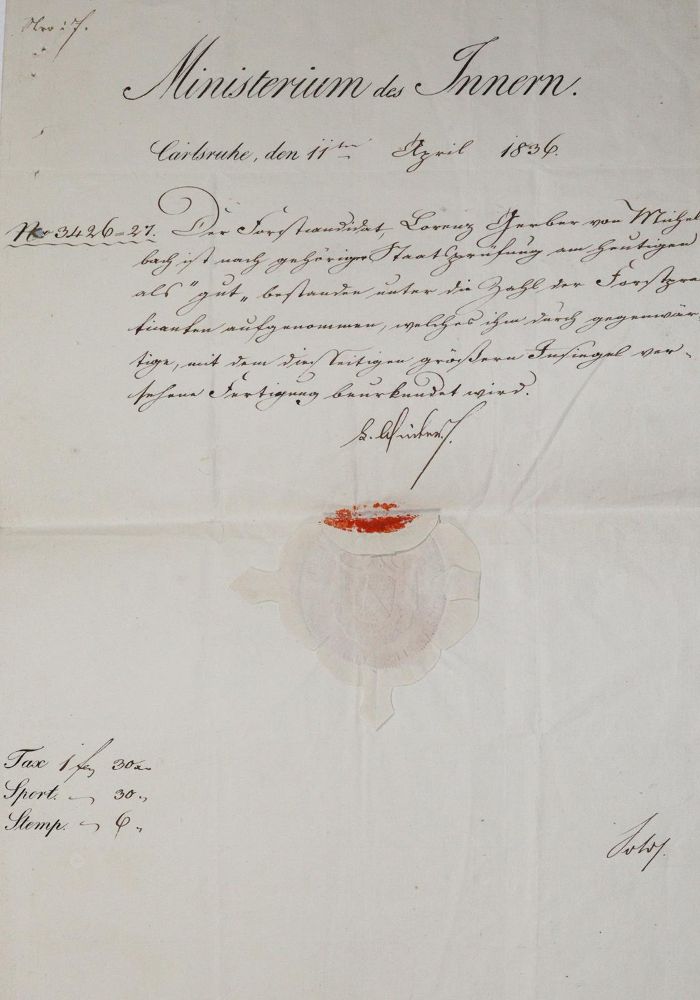 Nro: 7.
Ministerium des Innern.
Carlsruhe, den 11ten April 1836.
No 3426-27. Der Forstcandidat Lorenz Gerber von Michel
bach ist nach gehöriger Staatsprüfung am heutigen
als "gut" bestanden unter die Zahl der Forstpra
tikanten aufgenommen, welches ihm durch gegenwär
tige, mit dem diesseitigen größern Insiegel ver-
sehene Fertigung beurkundet wird.
Tax 1 f 30 x
Sport. - 30 "
Stemp. - 6 "